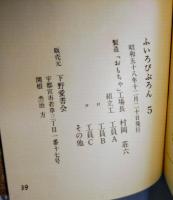 ふいろびぶろん 5
昭和五十八年十二月二十日発行
製造 「おもちゃ」工場長 村岡 荘六
組立工 工員A
〃 工員B
〃 工員C
その他
販売元 下野愛書会
宇都宮市若草三丁目一番十七号
関根 方
39